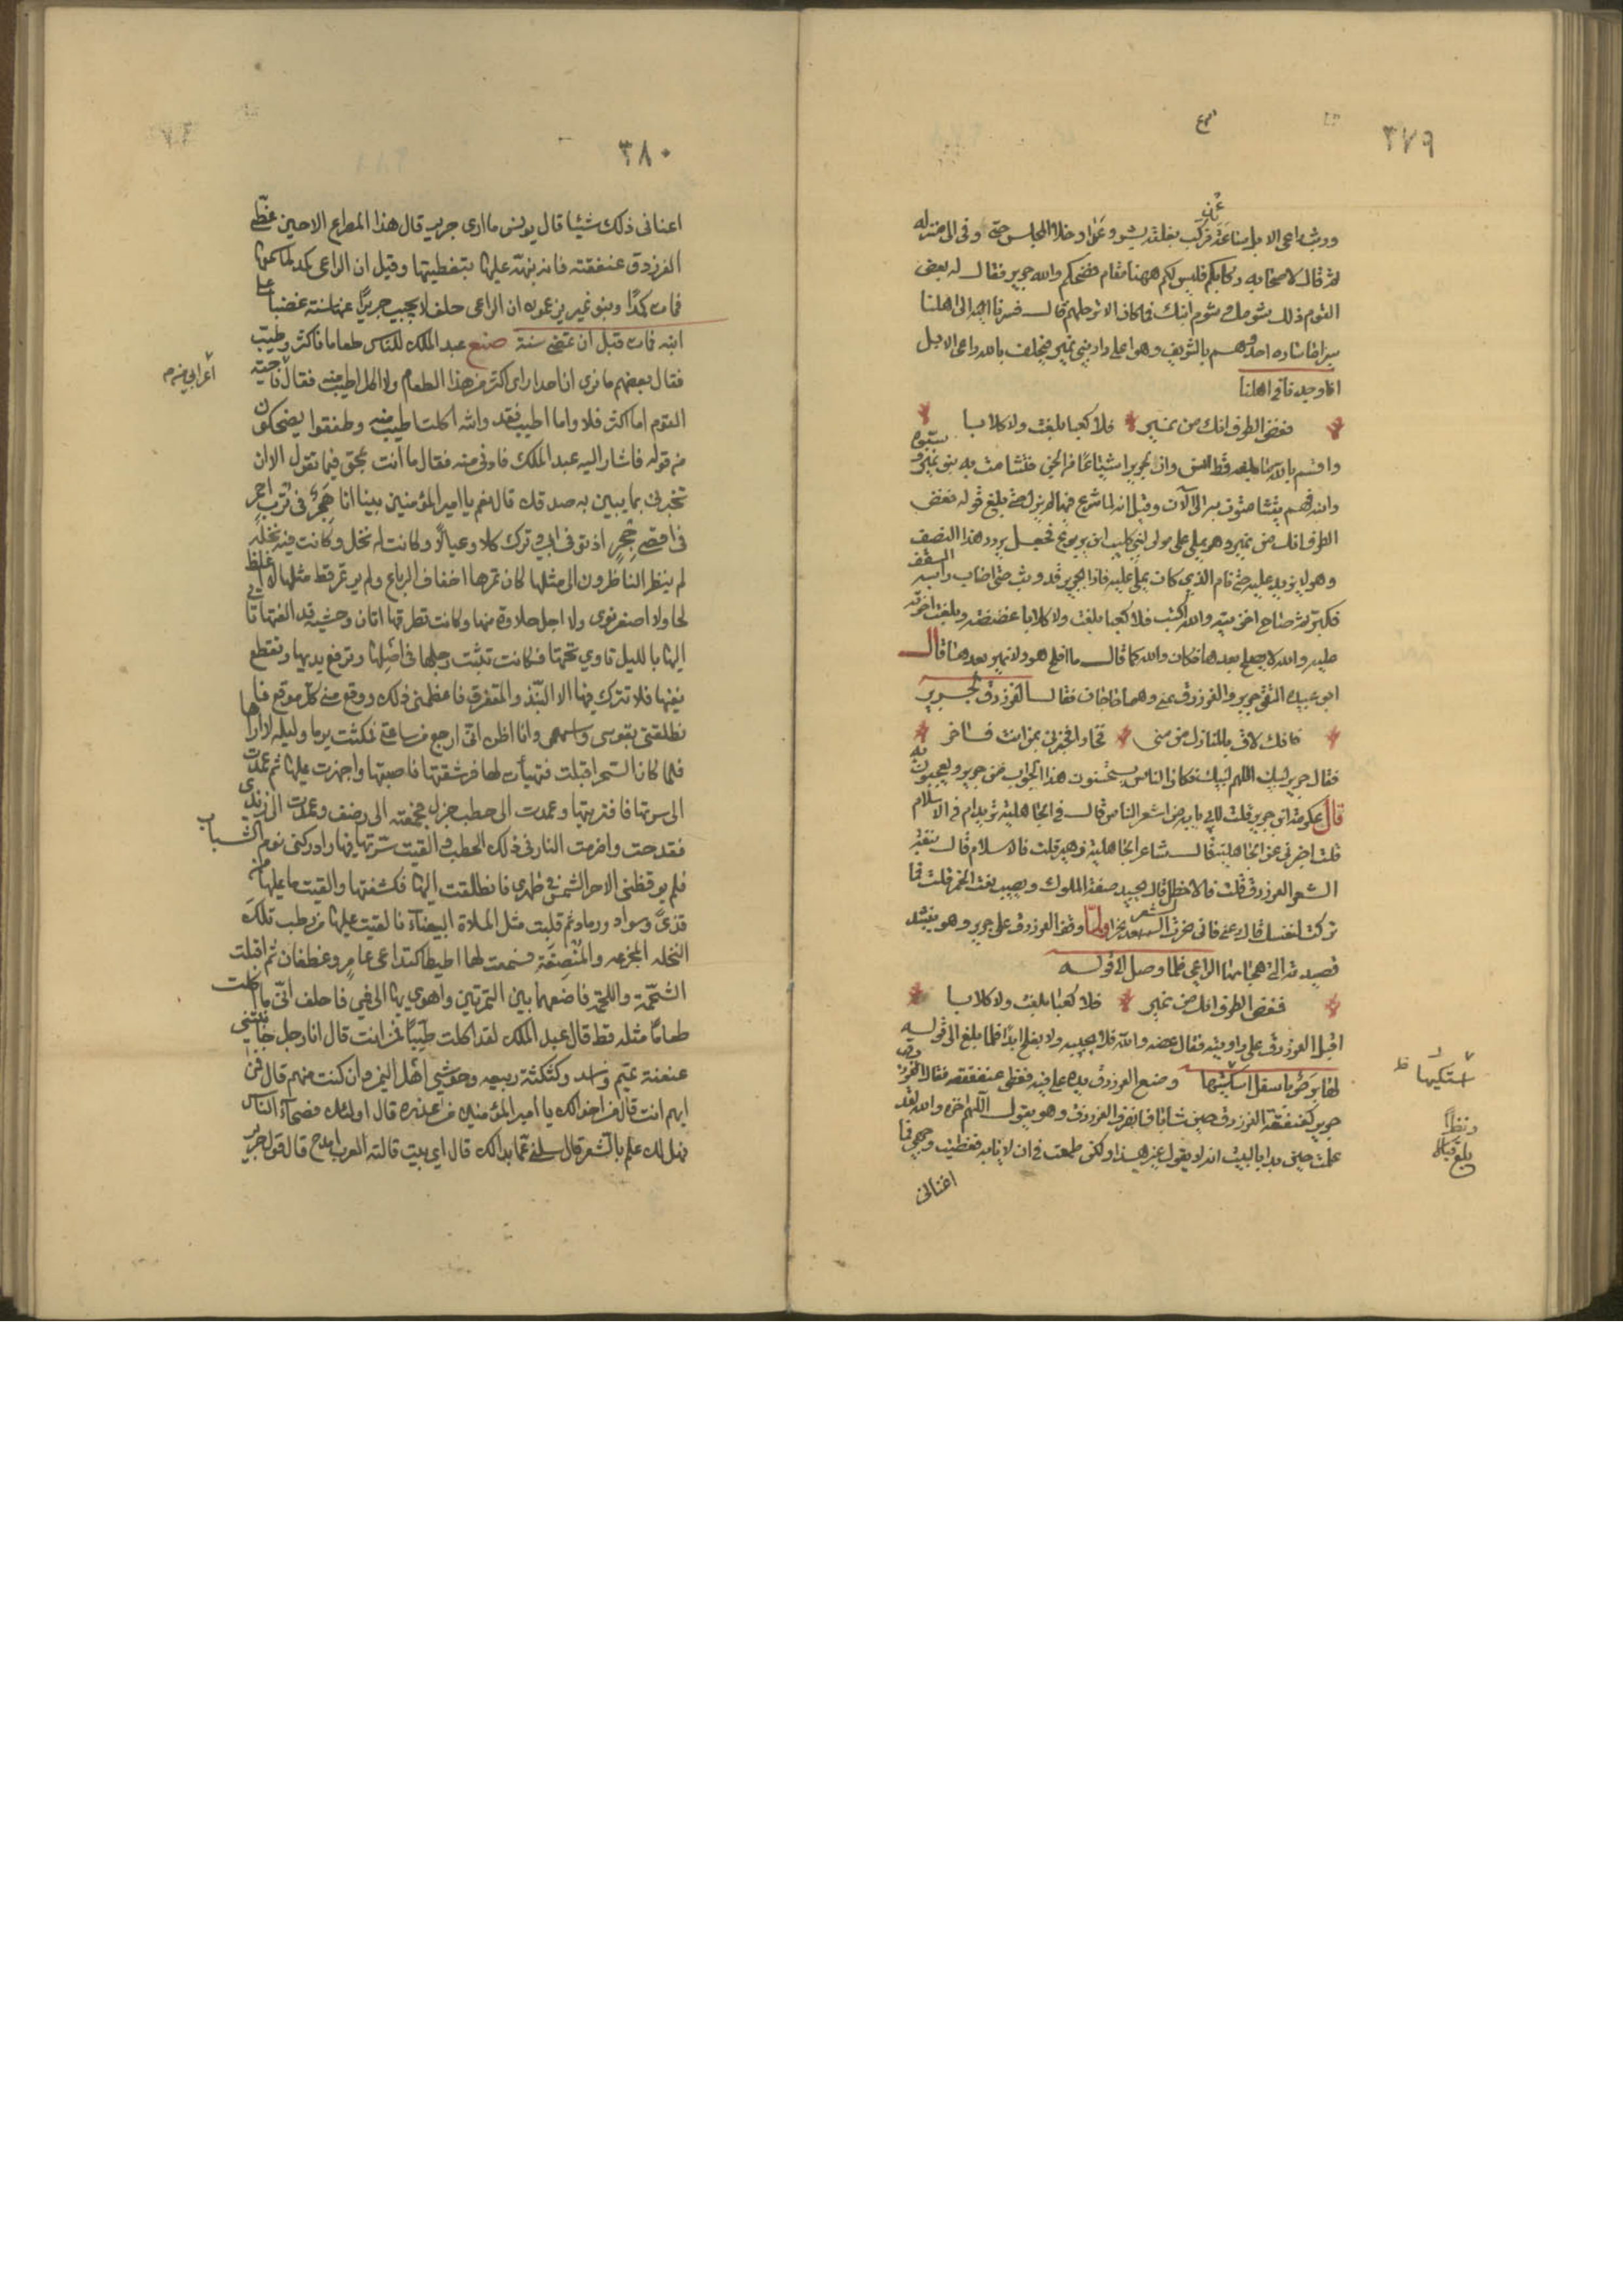 ٣٧٩
ثم قال لاصحابه ركابكم فليس لكم ههنا مقام فضحكم والله جرير فقال له بعض
القوم ذلك بشومك وشوم ابنك قال
سيرا ما ساره احد وهم بالشريف وهو اعلى دار بني نمير فيحلف بالله راعي الابل
انا وجدنا في اهلنا
فغض الطرف انك من نمير فلا كعبا بلغت ولا كلابا
الطرف انك من نمير وهو يملي على مولى لبني كليب ابن يربوع فجعل يردد هذا النصف
السقف
وهو لا يزيد عليه حتى قام الذي كان يملي عليه فاذا بجرير قد وثب حتى اصاب راسه
فكبر ثم صاح اخزيته والله اكتب فلا كعبا بلغت ولا كلابا غضضته
عليه والله لا يفلح بعدها فكان والله كما قال ما افلح هو ولا نمير بعدها قال
ابو عبيده التقى جرير والفرزدق بمنى وهما حاجان فقال الفرزدق لجرير
فانك لاق بالمنازل من منى فخارا فخبرني بمن انت فاخر
فقال جرير لبيك اللهم لبيك فكان الناس يستحسنون هذا الجواب من جرير ويعجبون به
قال عكرمة ابن جرير قلت لابي يا ابه من اشعر الناس قال في الجاهلية تريد ام في الاسلام
قلت اخبرني عن الجاهلية قال شاعر الجاهلية زهير قلت فالاسلام قال نبعة
الشعر الفرزدق قلت فالاخطل قال يجيد صفة الملوك ويصيب نعت الخمر قلت فما
تركت لنفسك قال دعني فاني نحرت الشعر نحرا ولما وقف الفرزدق على جرير وهو ينشد
قصيدته التي هجا بها الراعي فلما وصل الى قوله
فغض الطرف انك من نمير فلا كعبا بلغت ولا كلابا
اقبل الفرزدق على راويته فقال غضه والله فلا يجيبه ولا يفلح ابدا فلما بلغ الى قوله
لها برص باسفل اسكتيها وضع الفرزدق يده على فيه فغطى عنفقته فقال
جرير كعنفقة الفرزدق حين شابا فانصرف الفرزدق وهو يقول اللهم اخزه والله لقد
علمت حين بدا بالبيت انه لا يقول غير هذا ولكن طمعت في ان لا يابه فغطيت وجهي فما
اغناني
اسكتيها ظ
بلغ مقابلة
٣٨٠
اغناني ذلك شيئا قال يونس ما ارى جرير قال هذا المصراع الا حين غطى
الفرزدق عنفقته فانه نبهه عليها بتغطيتها وقيل ان الراعي كمد لما سمعها
فمات كمدا وبنو نمير يزعمون ان الراعي حلف لا يجيب جريرا عنها سنة غضبا على
ابنه فمات قبل ان تمضي سنة صنع عبد الملك للناس طعاما فاكثر وطيب
فقال بعضهم ما نرى ان احدا راى اكثر من هذا الطعام ولا اكل اطيب منه فقال ناحية
اعرابي من
القوم اما اكثر فلا واما اطيب فقد والله اكلت اطيب منه وطفقوا يضحكون
من قوله فاشار اليه عبد الملك فادني منه فقال ما انت بمحق فيما تقول الا ان
تخبرني بما يبين به صدقك قال نعم يا امير المؤمنين بينا انا بهجر في ترب احمر
في اقصى حجر اذ توفي ابي وترك كلا وعيالا وكانت له نخل وكانت فيه نخلة
لم ينظر الناظرون الى مثلها كان تمرها اخفاف الرباع ولم ير تمر قط مثلها اغلظ
لحا ولا اصغر نوى ولا احلى حلاوة منها وكانت تطرقها اتان وحشية قد الفتها تاوي
اليها بالليل تاوي تحتها فكانت تثبت رجلها في اصلها وترفع يديها وتقطع
بفيها فلا تترك فيها الا النبذ والمتفرق فاعظمني ذلك ووقع مني كل موقع
فانطلقت بقوسي واسهمي وانا اظن اني ارجع من ساعتي فمكثت يوما وليلة لا اراها
فلما كان السحر اقبلت فتهيأت لها فرشقتها فاصبتها واجهزت عليها ثم عمدت
الى سرتها فاقتددتها وعمدت الى حطب جزل فجمعته الى رضف وعمدت الى زندي
فقدحت واضرمت النار في ذلك الحطب والقيت سرتها فيها وادركني نوم الشباب
فلم يوقظني الا حر الشمس في ظهري فانطلقت اليها فكشفتها والقيت ما عليها من
قذى وسواد ورماد ثم قلبت مثل الملاة البيضاء فالقيت عليها من رطب تلك
النخله المجزعه والمنصفة فسمعت لها اطيطا كتداعي عامر وغطفان ثم اقبلت
الشحمة واللحمة فاضعهما بين التمرتين واهوي بها الى فمي فاحلف اني ما اكلت
طعاما مثله قط قال عبد الملك لقد اكلت طيبا فمن انت قال انا رجل جانبتني
عنعنة تميم واسد وكشكشة ربيعه وحوشي اهل اليمن وان كنت منهم قال فمن
ايهم انت قال من اخوالك يا امير المؤمنين من عذرة قال اولئك فصحاء الناس
فهل لك علم بالشعر قال سلني عما بدا لك قال اي بيت قالته العرب امدح قال قول جرير